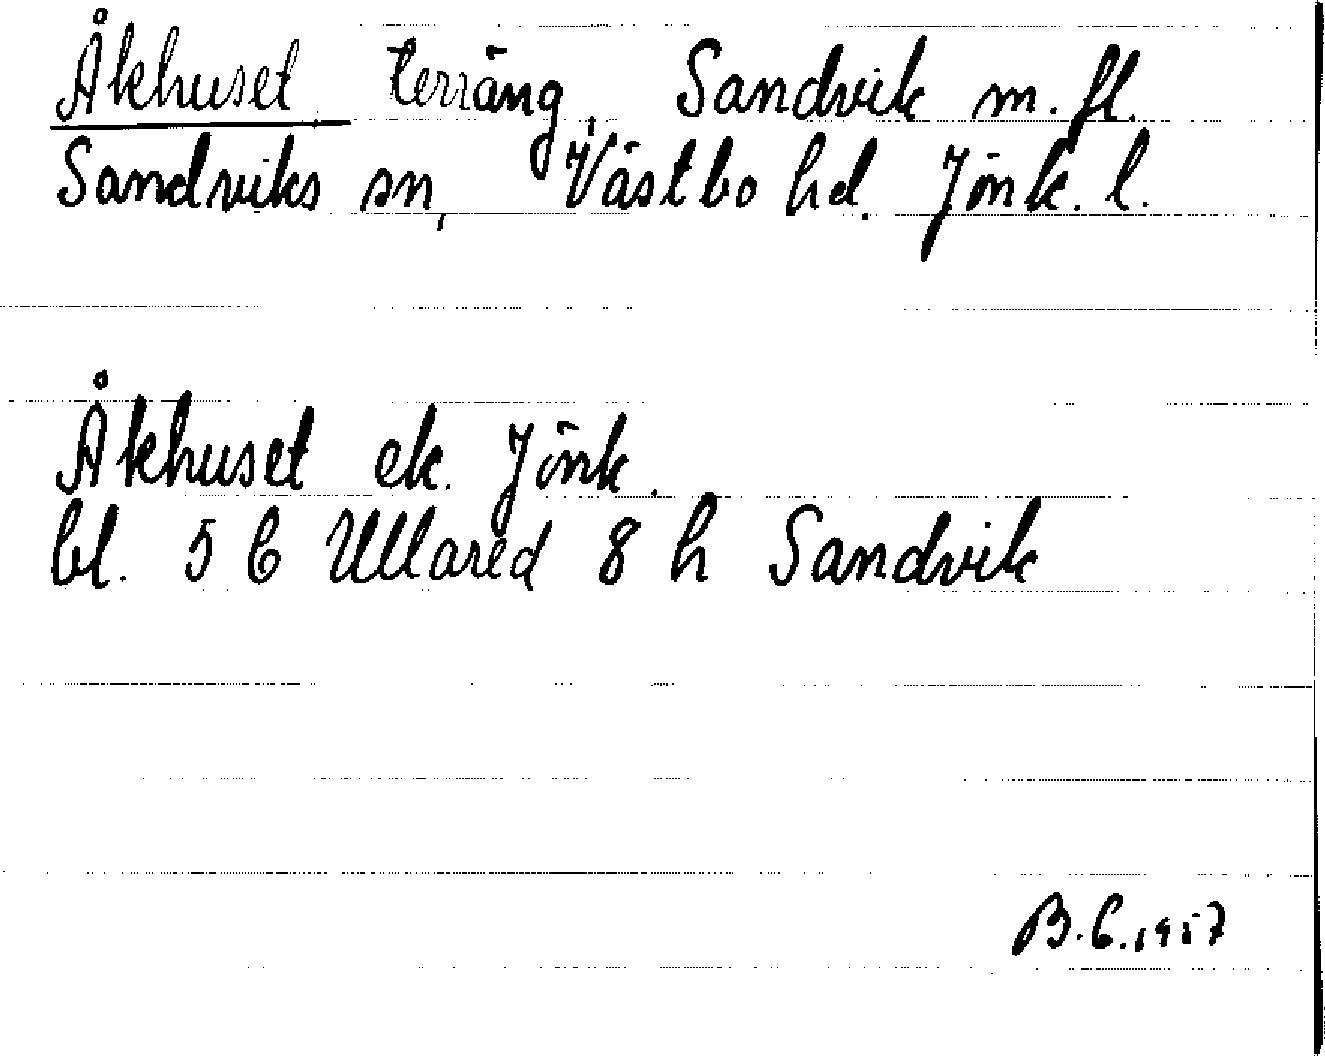 Åkhuset terräng, Sandvik m.fl.
Sandviks sn, Västbo hd. Jönk. l.
Åkhuset ek. Jönk.
bl. 5 C Ullared 8 h Sandvik
B.C. 1957